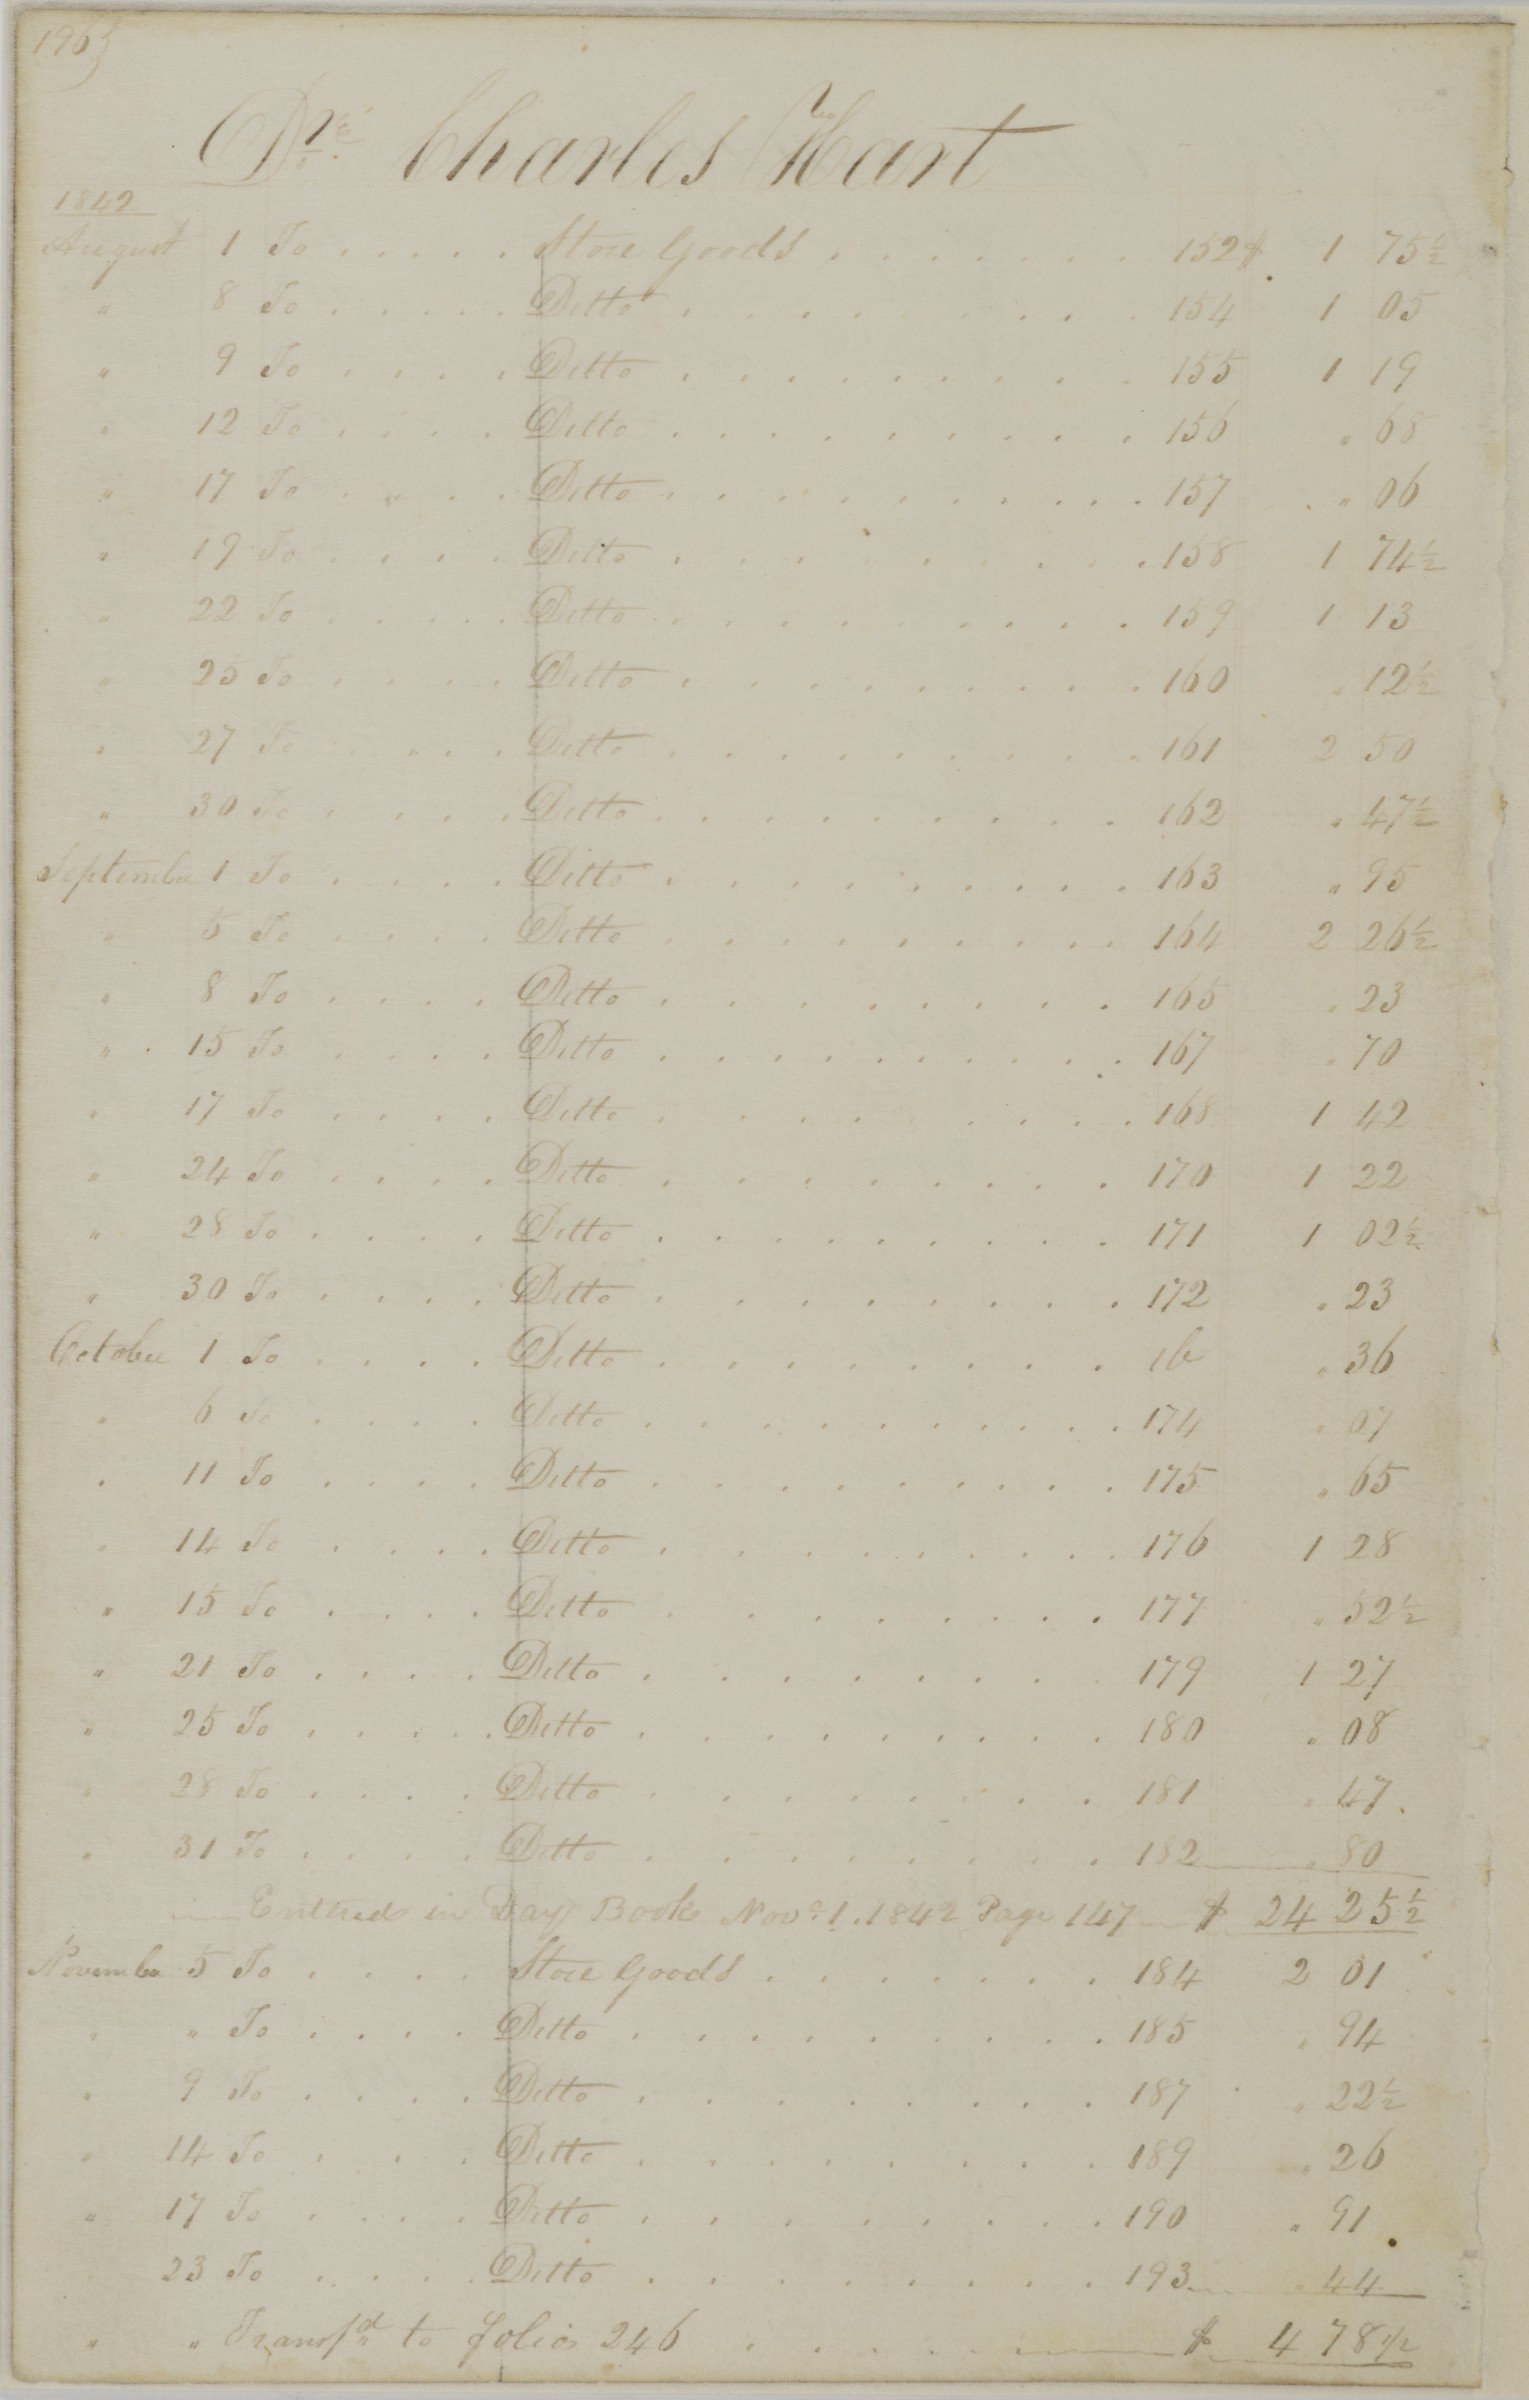 196
Dr. Charles Hart
1842
August 1 To . . . . . Store Goods . . . . . . . 152 $ 1 75 1/2
" 8 To . . . . . Ditto . . . . . . . . . 154 1 05
" 9 To . . . . . Ditto . . . . . . . . . 155 1 19
" 12 To . . . . Ditto . . . . . . . . . 156 " 68
" 17 To . . . . . Ditto . . . . . . . . . 157 " 06
" 19 To . . . . . Ditto . . . . . . . . . 158 1 74 1/2
" 22 To . . . . . Ditto . . . . . . . . . 159 1 13
" 25 To . . . . Ditto . . . . . . . . . 160 " 12 1/2
" 27 To . . . . . Ditto . . . . . . . . . 161 2 50
" 30 To . . . . . Ditto . . . . . . . . . 162 " 47 1/2
September 1 To . . . . Ditto . . . . . . . . . 163 " 95
" 5 To . . . . Ditto . . . . . . . . . 164 2 26 1/2
" 8 To . . . . Ditto . . . . . . . . . 165 " 23
" 15 To . . . . Ditto . . . . . . . . . 167 " 70
" 17 To . . . . Ditto . . . . . . . . . 168 1 42
" 24 To . . . . Ditto . . . . . . . . . 170 1 22
" 28 To . . . . Ditto . . . . . . . . . 171 1 02 1/2
" 30 To . . . . Ditto . . . . . . . . . 172 " 23
October 1 To . . . . Ditto . . . . . . . . . ib " 36
" 6 To . . . . Ditto . . . . . . . . . 174 " 07
" 11 To . . . . Ditto . . . . . . . . . 175 " 65
" 14 To . . . . Ditto . . . . . . . . . 176 1 28
" 15 To . . . . Ditto . . . . . . . . . 177 " 52 1/2
" 21 To . . . . Ditto . . . . . . . . . 179 1 27
" 25 To . . . . . Ditto . . . . . . . . . 180 " 08
" 28 To . . . . Ditto . . . . . . . . . 181 " 47
" 31 To . . . . Ditto . . . . . . . . . 182 " 80
Entered in Day Book Novr 1. 1842 Page 147 $ 24 25 1/2
November 5 To . . . . Store Goods . . . . . . . 184 2 01
" " To . . . . Ditto . . . . . . . . . 185 " 94
" 9 To . . . . Ditto . . . . . . . . . 187 " 22 1/2
" 14 To . . . Ditto . . . . . . . . . 189 " 26
" 17 To . . . . Ditto . . . . . . . . . 190 " 91
23 To . . . . Ditto . . . . . . . . . 193 " 44
" " Transfd to folio 246 . . . . . . $ 4 78 1/2